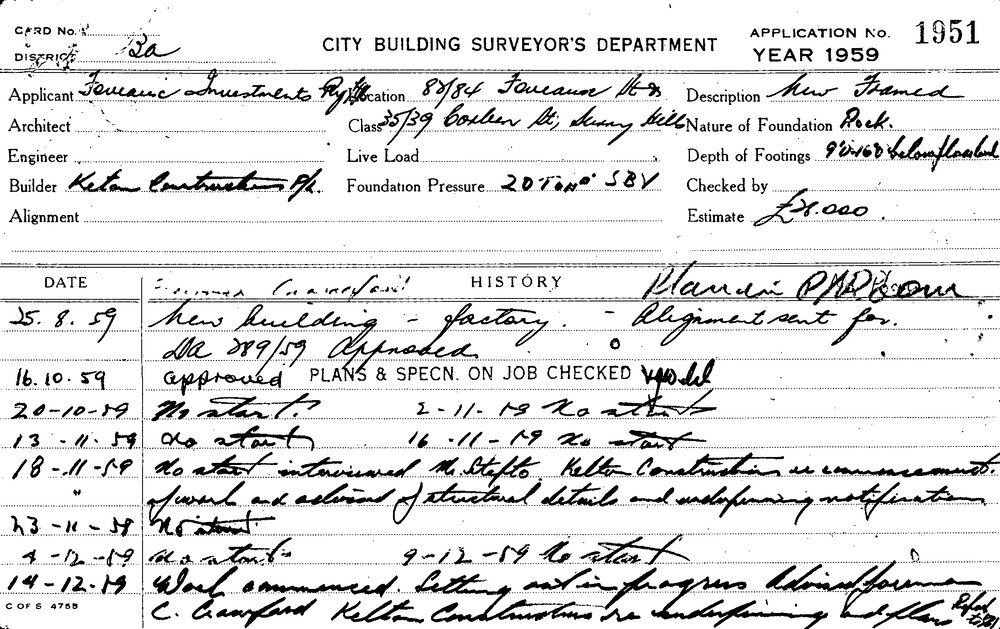 CARD No.
DISTRICT Ba
CITY BUILDING SURVEYOR'S DEPARTMENT
APPLICATION No. 1951
YEAR 1959
Applicant Foveaux Investments Pty Ltd Location 82/84 Foveaux St &
Description New Framed
Architect
Class 35/39 Corben St, Surry Hills
Nature of Foundation Rock.
Engineer
Live Load
Depth of Footings 9'0-16'0 below floor level
Builder Kelton Constructions P/L.
Foundation Pressure 20 Tons SBV
Checked by
Alignment
Estimate £28.000.
DATE HISTORY
25.8.59 New building - factory. - Alignment sent for.
DA 289/59 Approved
16.10.59 approved PLANS & SPECN. ON JOB CHECKED
20-10-59 No start. 2-11-59 No start
13-11-59 No start 16-11-59 No start
18-11-59 No start interviewed Mr. Kelton Constructions re commencement.
" of work and advised of structural details and underpinning notification
23-11-59 No start
4-12-59 No start 9-12-59 No start
14-12-59 Work commenced. Setting out in progress Advised foreman
C. Crawford Kelton Constructions re underpinning and plans
C OF S 475B